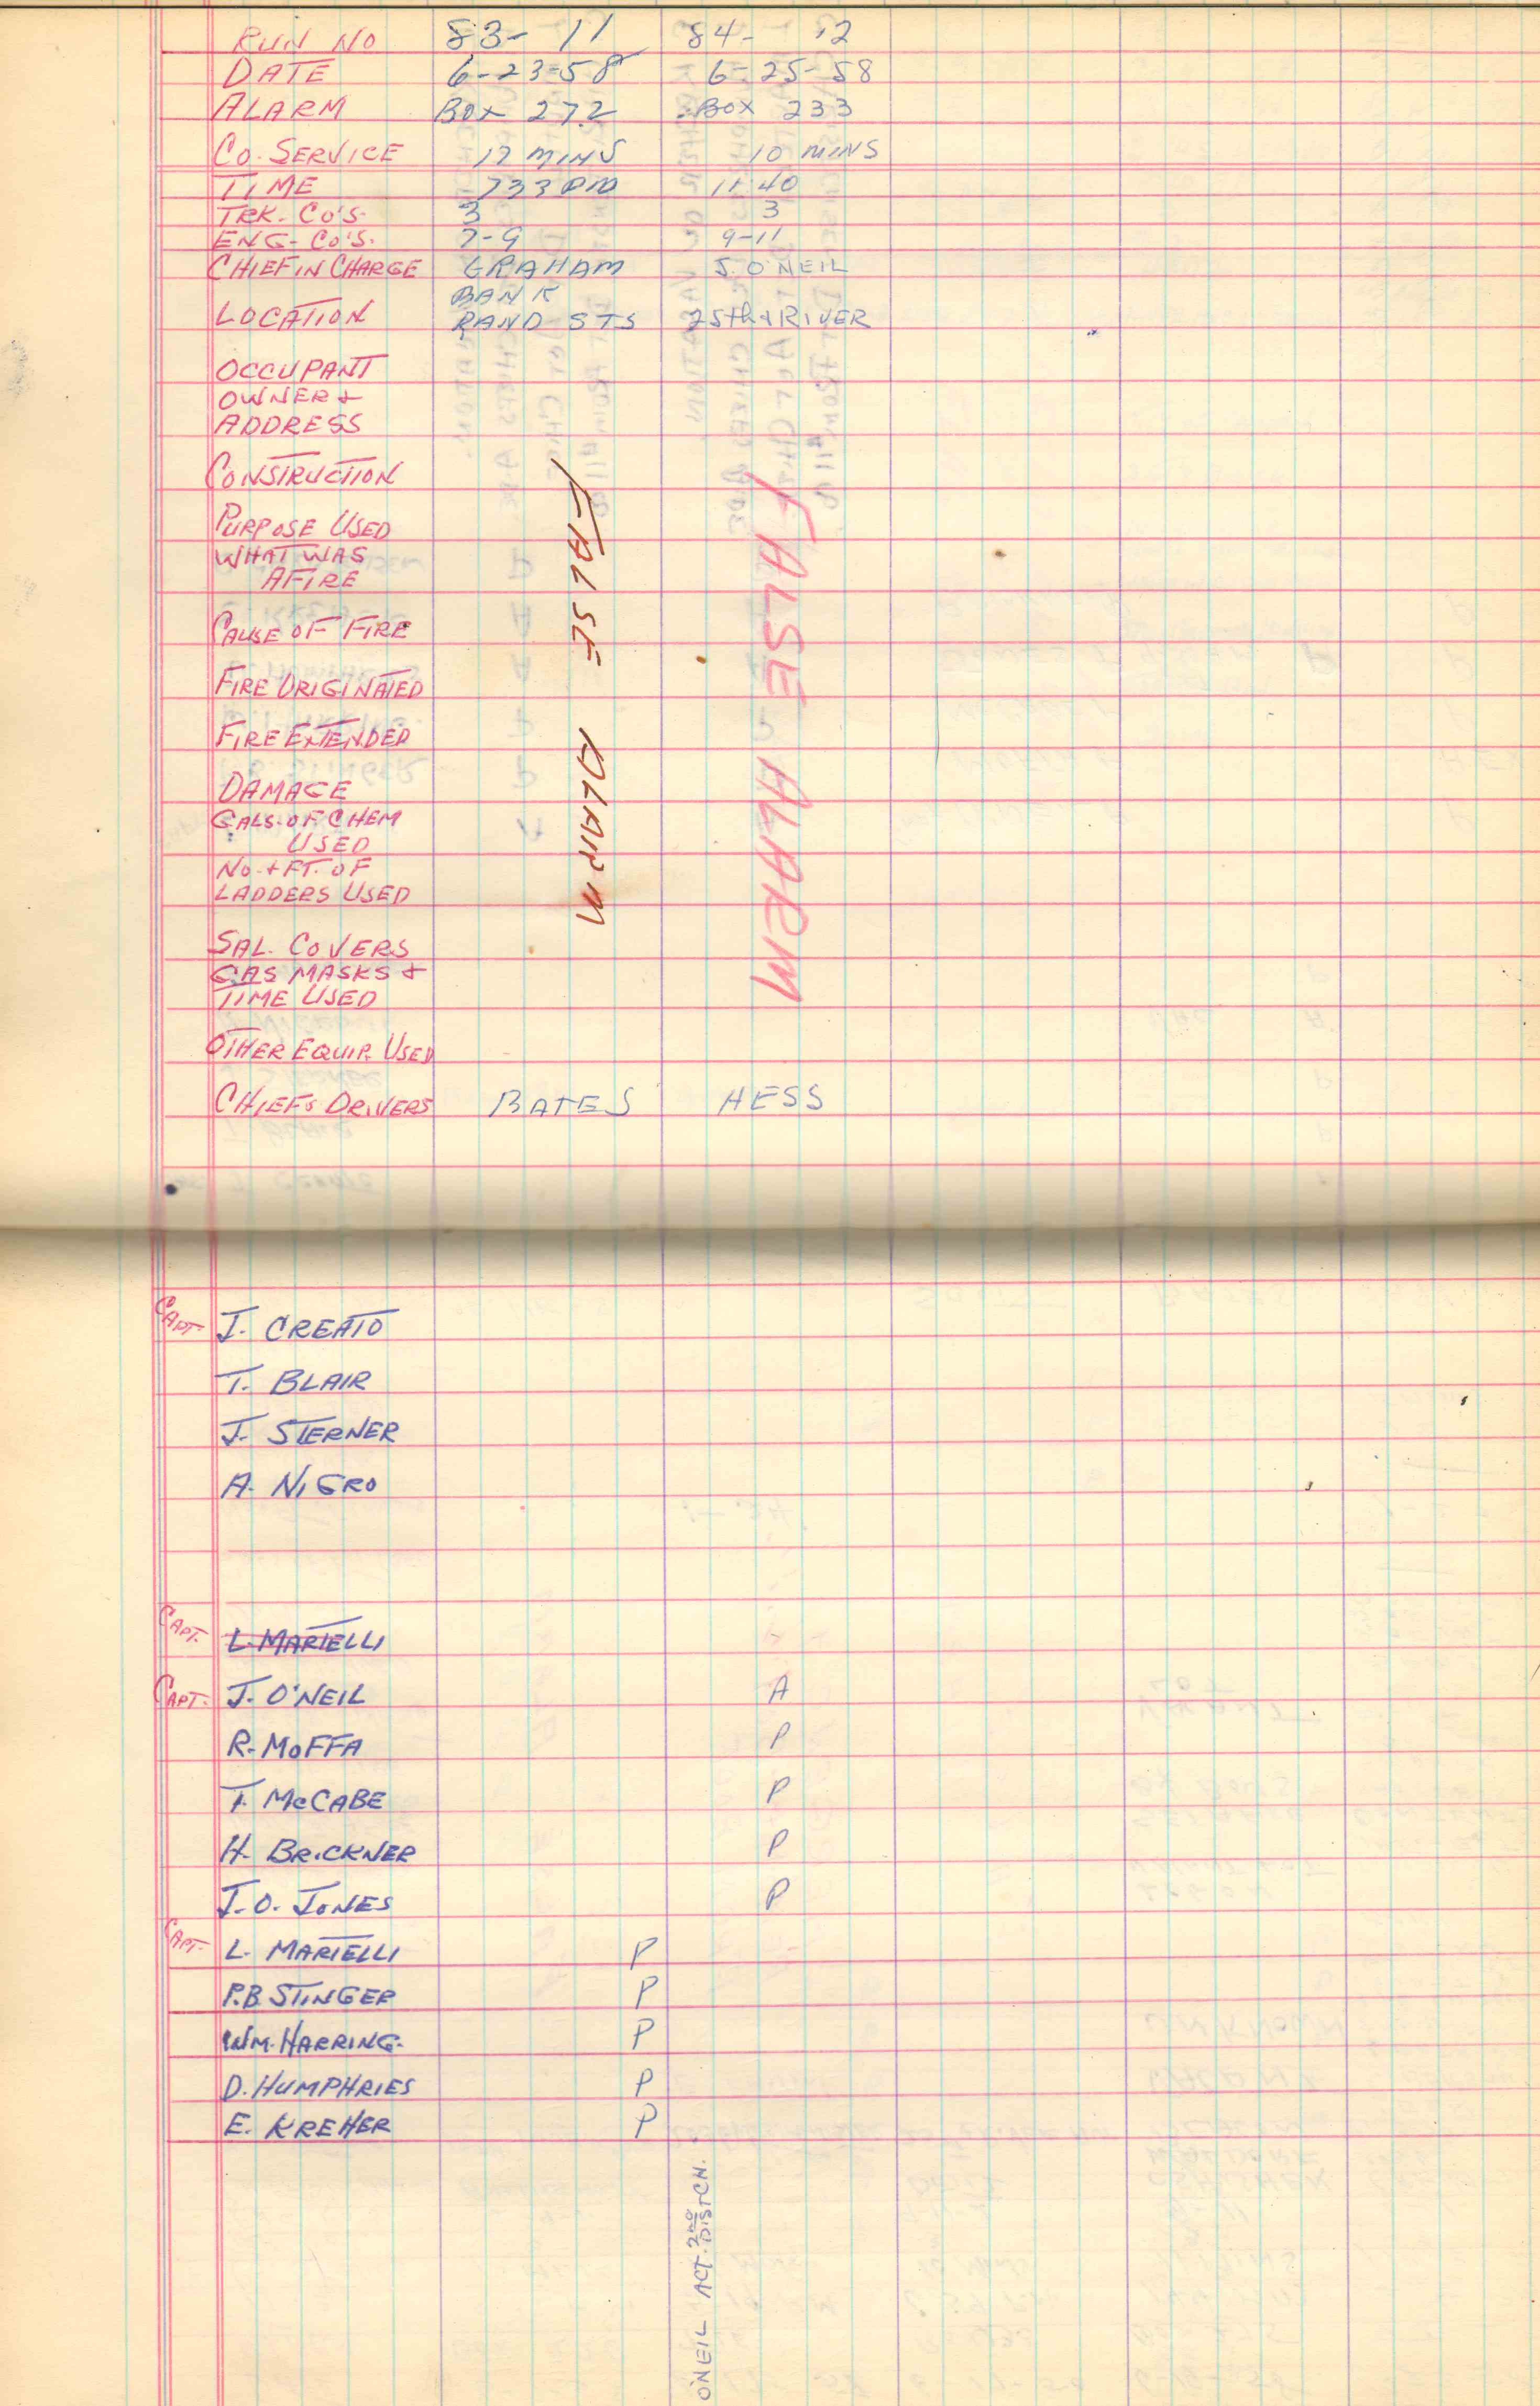 RUN NO 83- 11 84- 12
DATE 6-23-58 6-25-58
ALARM BOX 272 BOX 233
CO. SERVICE 17 MINS 10 MINS
TIME 733 PM 11:40
TRK. CO'S. 3 3
ENG- CO'S. 7-9 9-11
CHIEF IN CHARGE GRAHAM J. O'NEIL
BANK
LOCATION RAND STS 25th & RIVER
OCCUPANT
OWNER &
ADDRESS
CONSTRUCTION
PURPOSE USED
WHAT WAS
AFIRE
CAUSE OF FIRE
FIRE ORIGINATED
FIRE EXTENDED
DAMAGE
GALS. OF CHEM
USED
NO. + FT. OF
LADDERS USED
SAL. COVERS
GAS MASKS &
TIME USED
OTHER EQUIP. USED
FALSE ALARM
FALSE ALARM
CHIEFS DRIVERS BATES HESS
CAPT. J. CREATO
T. BLAIR
J. STERNER
A. NIGRO
CAPT. L. MARTELLI
CAPT. J. O'NEIL A
R. MOFFA P
T. McCABE P
H. BRICKNER P
J.O. JONES P
CAPT. L. MARTELLI P
P.B. STINGER P
WM. HARRING. P
D. HUMPHRIES P
E. KREHER P
O'NEIL ACT. 2nd DIST CH.